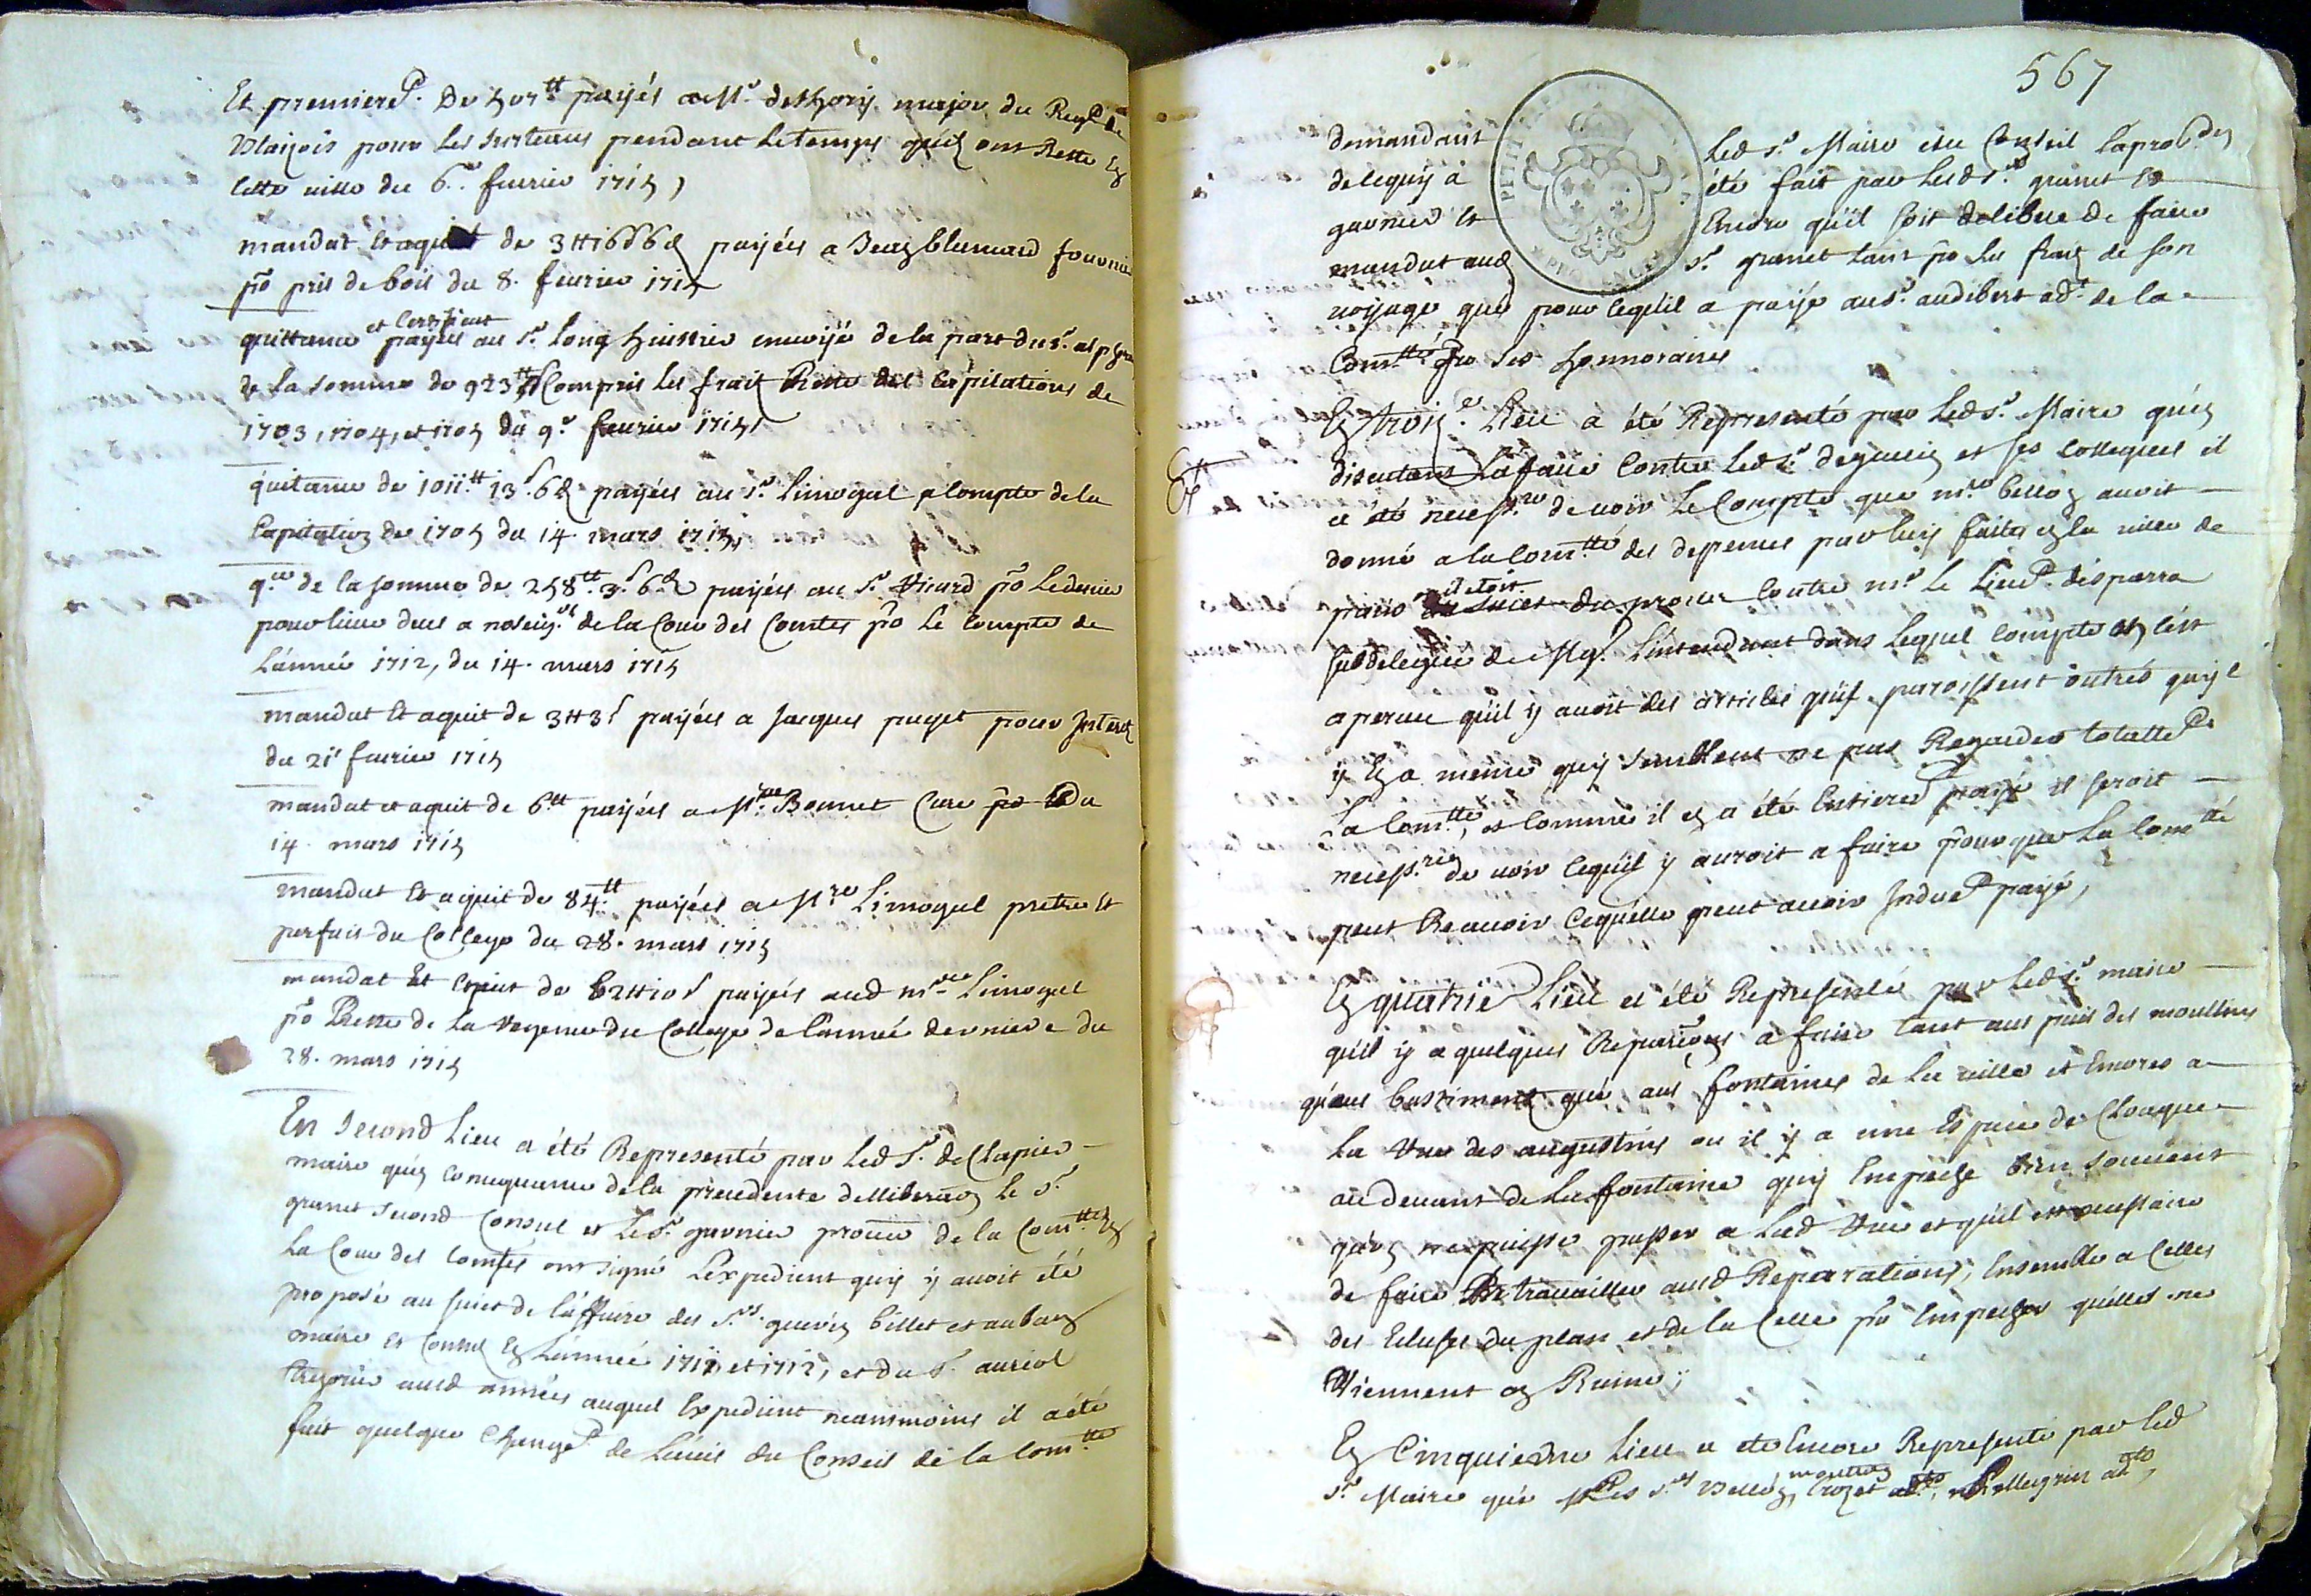 Et premieremt. De payés a Mr. major du Regt de
Blaizois pour les pendant le temps qu'il ont Resté En
cette ville du 6e. fevrier 1715
mandat et aquit de 3tt 16s 6d payées a Jean blancard fournier
po pris de bois du 8. fevrier 1715
et
quittance payées au sr. Long huissier envoyé de la part du sr.
de la somme de 923tt Compris les fraix Reste des Capitations de
1703, 1704, et 1705 du 9e fevrier 1715
quitance de 1011.tt 13s. 6d payées au sr. Limogal a Compte de la
Capitation de 1705 du 14. mars 1715
q.ce de la somme de 258tt. 3s. 6d payées au sr. po
deus a noseigrs de la Cour des Comtes po Le compte de
L'année 1712, du 14. mars 1715
mandat et aquit de 3tt 3s payées a Jacques puget pour Interetz
du 21e fevrier 1715
mandat et aquit de 6tt payées a Mre. Bonnet Cure po du
14. mars 1715
mandat et aquit de 84.tt payées a Mre Limogal pretre et
prefait du College du 28. mars 1715
mandat et de 62tt 10s payées aud mre Limogal
po Reste de la Regence du College de l'année derniere du
28. mars 1715
En second Lieu a été Representé par Led Sr. de Clapier
maire qu'en consequence de la precedente delliberaon le sr.
granet second Consul et le Sr. garnier procur de la Comtté En
La Cour des comtes ont signé L'expedient quy y avoit été
proposé au sujet de l'affaire des Srs. guerin billet et auban
maire et Consul En L'année 1711 et 1712, et du Sr. auriol
trezorier ausd années auquel Expedient neansmoins il a été
fait quelque changemt de L'avis du Conseil de la Comtté
567
demandant Led sr. Maire au Conseil l'aprobaon
de ce quy à été fait par Lesd srs. granet Et
garnier et Encore qu'il soit delibere de faire
mandat aud sr. granet tant po les fraix de son
voyage que pour ce qu'il a payé au sr. audibert adt. de la
Comtté po ses honnoraires
En troize. Lieu a été Representé par Led sr. Maire qu'en
discutant L'affaire Contre Led sr. de guerin et ses collegues il
a été necessre de voir Le Compte que mre belloz avoit
donné a la Comtté des depences par luy faites en la ville de
paris ou il etoit du proces Contre mr. le Lieut. desparra
subdelegué de Mgr. L'intendant dans Lequel compte on s'est
aperceu qu'il y avoit des articles quy paroissent outrés quy
y En a meme quy semblent ne pas Regarder totallemt
La Comtté, et comme il en a été Entieremt payé il seroit
necessre de voir cequ'il y auroit a faire pour que La Comtté
peut Reavoir cequelle peut avoir Induemt payé,
En quatrie Lieu a été Representé par Led sr. maire
qu'il y a quelques Reparaons a faire tant aus puis des moullins
qu'aus bastimens que aus fontaines de la ville et Encores a
La Rue des augustins ou il y a une Espece de Cloaque
au devant de La fontaine quy Empeche bien souvent
qu'on ne puisse passer a Lad Rue et qu'il est necessaire
de faire travailler ausd Reparations, Ensemble a Celles
des Ecluses du plan et de la Celle po Empecher quelles ne
Viennent en Ruine;
En Cinquiesme Lieu a ete Encore Representé par led
sr. Maire que Les srs Crozet Pellegrin adts,